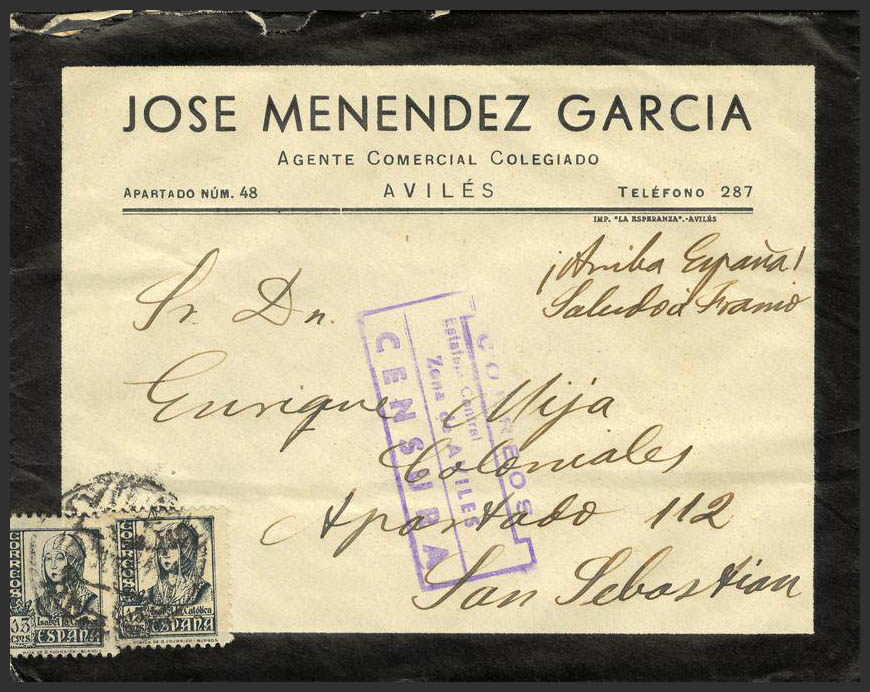 JOSE MENENDEZ GARCIA
AGENTE COMERCIAL COLEGIADO
APARTADO NÚM. 48 AVILÉS TELÉFONO 287
IMP. "LA ESPERANZA".-AVILÉS
¡Arriba España!
Saludo a Franco
Sr. Dn.
Enrique Mija
Coloniales
Apartado 112
San Sebastian
CORREOS
Estafeta Central
Zona de AVILES
CENSURA
CORREOS
15 cms
Isabel la Católica
ESPAÑA
CORREOS
15
Isabel la Católica
ESPAÑA